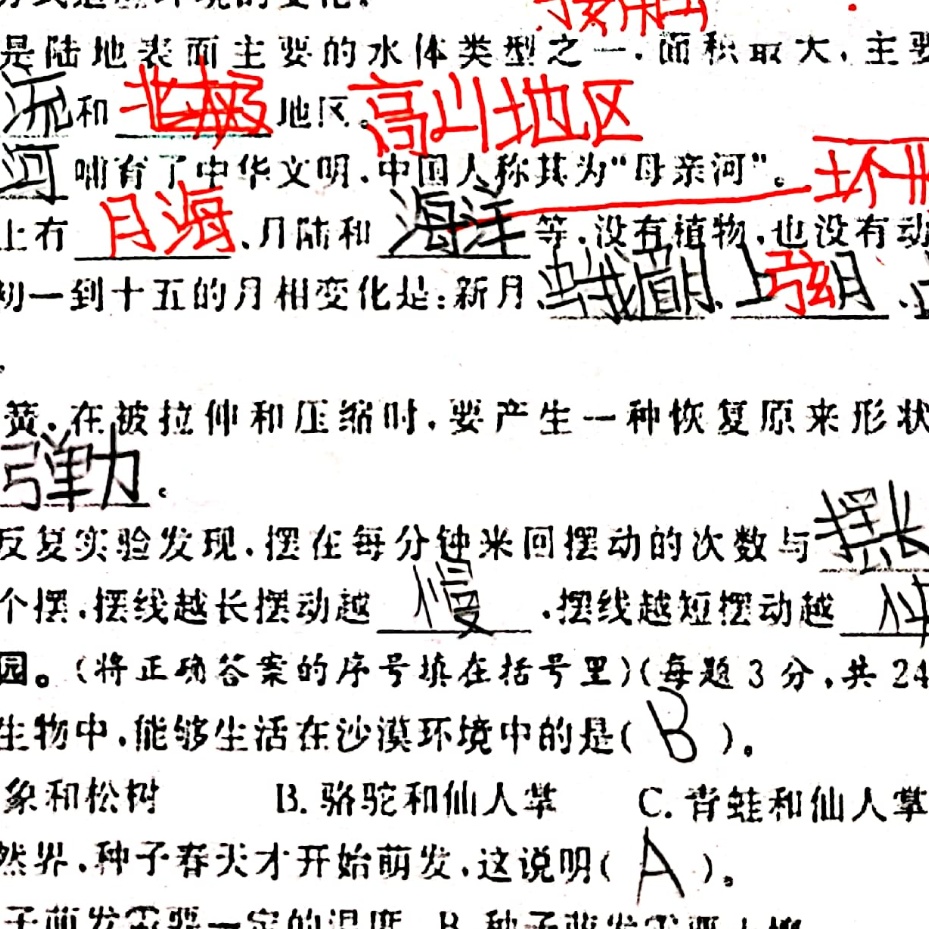 是陆地表面主要的水体类型之一,面积最大,主要
流和北极地区。高山地区
河 哺育了中华文明,中国人称其为“母亲河”。环形
上有 月海、月陆和 海洋 等,没有植物,也没有动
初一到十五的月相变化是:新月、蛾眉月、上弦月、
簧,在被拉伸和压缩时,要产生一种恢复原来形状
弹力。
反复实验发现,摆在每分钟来回摆动的次数与摆长
个摆,摆线越长摆动越 慢 ,摆线越短摆动越
园。(将正确答案的序号填在括号里)(每题3分,共24
生物中,能够生活在沙漠环境中的是( B )。
象和松树 B. 骆驼和仙人掌 C. 青蛙和仙人掌
然界,种子春天才开始萌发,这说明( A )。
子萌发需要一定的温度 B. 种子萌发需要